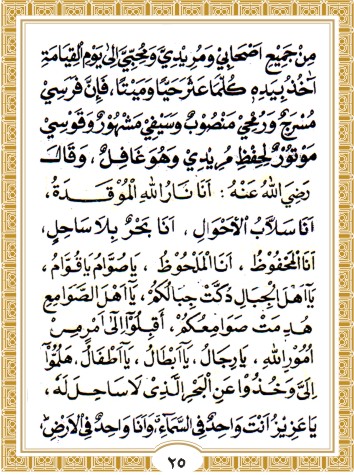 مِنْ جَمِيْعِ اَصْحَابِيْ وَمُرِيْدِيَّ وَمُحِبِّيَّ اِلٰى يَوْمِ الْقِيَامَةِ
اٰخُذُ بِيَدِهٖ كُلَّمَا عَثَرَ حَيًّا وَمَيْتًا، فَاِنَّ فَرَسِيْ
مُسْرَجٌ وَرُمْحِيْ مَنْصُوْبٌ وَسَيْفِيْ مَشْهُوْرٌ وَقَوْسِيْ
مَوْتُوْرٌ لِحِفْظِ مُرِيْدِيْ وَهُوَ غَافِلٌ، وَقَالَ
رَضِيَ اللهُ عَنْهُ: اَنَا نَارُ اللهِ الْمُوْقَدَةُ،
اَنَا سَلَّابُ الْاَحْوَالِ، اَنَا بَحْرٌ بِلَا سَاحِلٍ،
اَنَا الْمَحْفُوْظُ، اَنَا الْمَلْحُوْظُ، يَا صُوَّامُ يَا قُوَّامُ،
يَآ اَهْلَ الْجِبَالِ دُكَّتْ جِبَالُكُمْ، يَآ اَهْلَ الصَّوَامِعِ
هُدِمَتْ صَوَامِعُكُمْ، اَقْبِلُوْٓا اِلٰى اَمْرٍ مِنْ
اُمُوْرِ اللهِ، يَا رِجَالُ، يَآ اَبْطَالُ، يَآ اَطْفَالُ، هَلُمُّوْٓا
اِلَيَّ وَخُذُوْا عَنِ الْبَحْرِ الَّذِيْ لَا سَاحِلَ لَهُ،
يَا عَزِيْزُ اَنْتَ وَاحِدٌ فِي السَّمَآءِ، وَاَنَا وَاحِدٌ فِي الْاَرْضِ،
٢٥